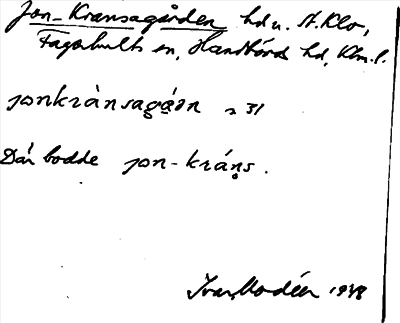 Jon-Kransagården hd u. St. Klo,
Fagerhults sn, Handbörds hd, Klm. l.
jonkrànsagá̱ɔn ɔ 31
Där bodde jon-kráns.
Ivar Modéer 1938